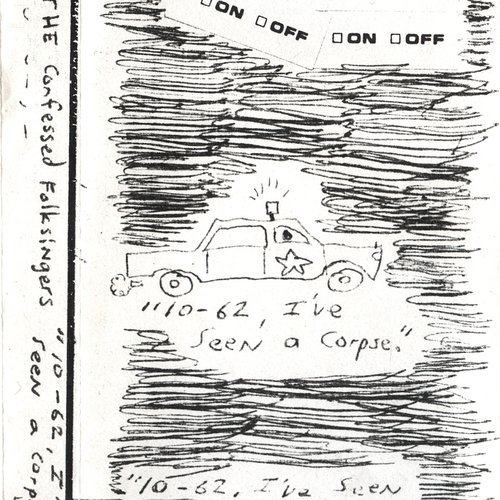 □ON □OFF
□ON □OFF
"10-62, I've
Seen a Corpse."
"10-62, I've Seen
THE Confessed Folksingers "10-62, I'
seen a Corp